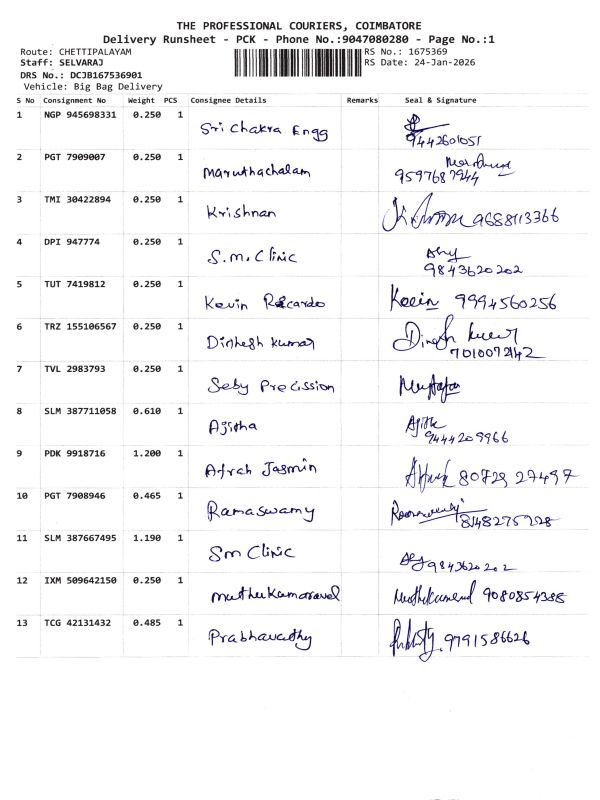 THE PROFESSIONAL COURIERS, COIMBATORE
Delivery Runsheet - PCK - Phone No.:9047080280 - Page No.:1
Route: CHETTIPALAYAM RS No.: 1675369
Staff: SELVARAJ RS Date: 24-Jan-2026
DRS No.: DCJB167536901
Vehicle: Big Bag Delivery
S No Consignment No Weight PCS Consignee Details Remarks Seal & Signature
1 NGP 945698331 0.250 1 Sri Chakra Engg 9442601051
2 PGT 7909007 0.250 1 Maruthachalam 9597687944
3 TMI 30422894 0.250 1 Krishnan 9688113366
4 DPI 947774 0.250 1 S.M. Clinic 9843620202
5 TUT 7419812 0.250 1 Kevin Ricardo Kevin 9994560256
6 TRZ 155106567 0.250 1 Dinhesh Kumar Dinesh Kumar
7 TVL 2983793 0.250 1 Seby Precission
8 SLM 387711058 0.610 1 Ajitha Ajitha 9444209966
9 PDK 9918716 1.200 1 Afrah Jasmin 80729 27497
10 PGT 7908946 0.465 1 Ramaswamy
11 SLM 387667495 1.190 1 Sm Clinic 9843620202
12 IXM 509642150 0.250 1 Muthukamaravel 9080854385
13 TCG 42131432 0.485 1 Prabhavathy 9791586626